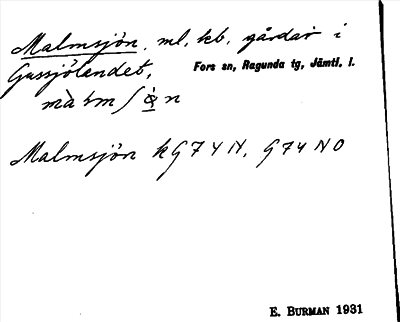 Malmsjön, ml, kb, gårdar i
Gussjölandet, Fors sn, Ragunda tg, Jämtl. l.
Malmsjön k G74N, G74NO
E. BURMAN 1931